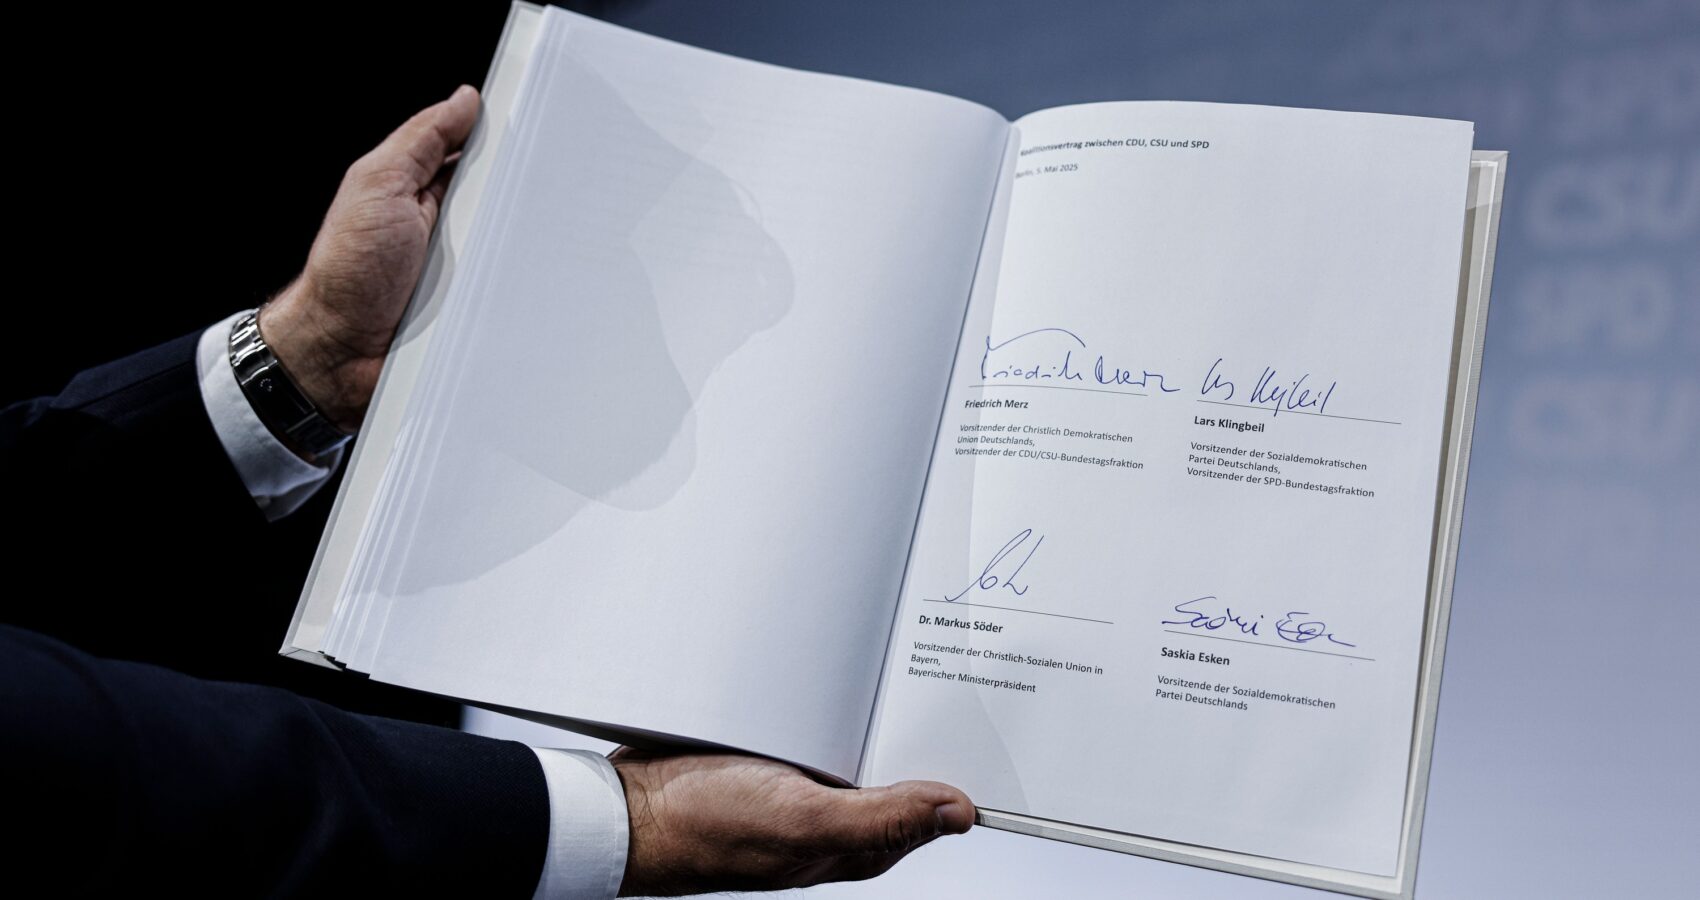 Koalitionsvertrag zwischen CDU, CSU und SPD
Berlin, 5. Mai 2025
Friedrich Merz
Lars Klingbeil
Friedrich Merz
Vorsitzender der Christlich Demokratischen
Union Deutschlands,
Vorsitzender der CDU/CSU-Bundestagsfraktion
Lars Klingbeil
Vorsitzender der Sozialdemokratischen
Partei Deutschlands,
Vorsitzender der SPD-Bundestagsfraktion
Saskia Esken
Dr. Markus Söder
Vorsitzender der Christlich-Sozialen Union in
Bayern,
Bayerischer Ministerpräsident
Saskia Esken
Vorsitzende der Sozialdemokratischen
Partei Deutschlands
CSU
SPD